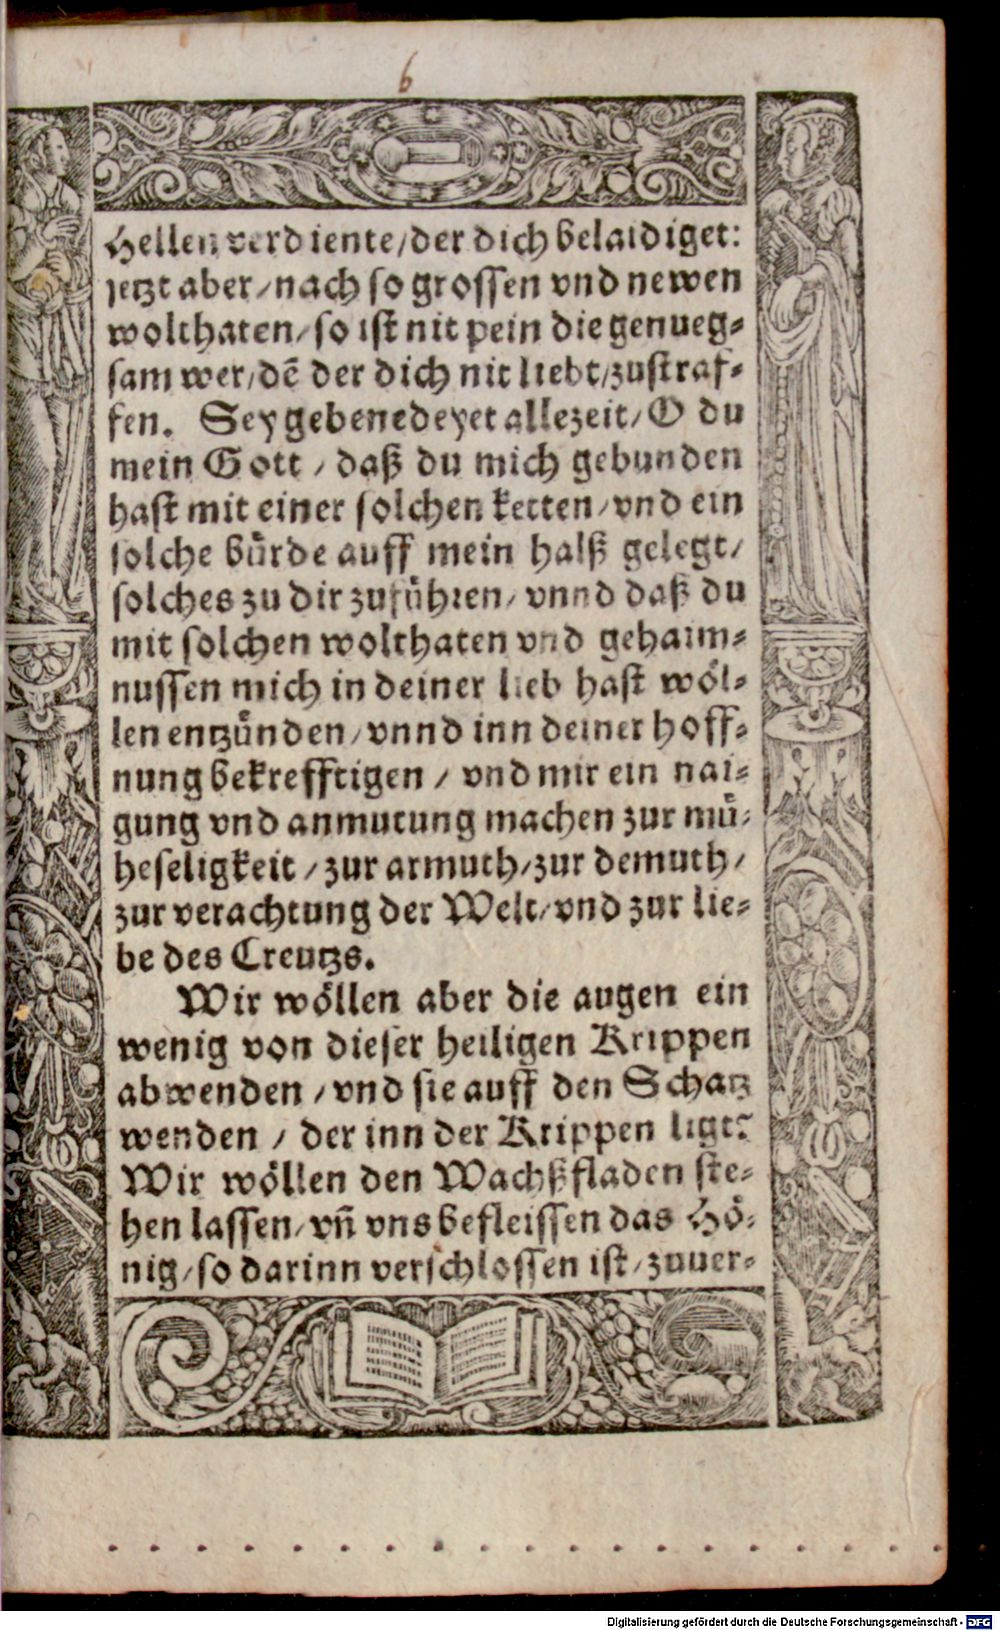 6
Hellen verdiente/der dich belaidiget:
jetzt aber/nach so grossen vnd newen
wolthaten/so ist nit pein die genueg⸗
sam wer/dē der dich nit liebt/zustraf⸗
fen. Sey gebenedeyet allezeit/O du
mein Gott / daß du mich gebunden
hast mit einer solchen ketten/vnd ein
solche bürde auff mein halß gelegt/
solches zu dir zuführen/vnnd daß du
mit solchen wolthaten vnd gehaim⸗
nussen mich in deiner lieb hast wöl⸗
len entzünden/vnnd inn deiner hoff⸗
nung bekrefftigen / vnd mir ein nai⸗
gung vnd anmutung machen zur mü⸗
heseligkeit / zur armuth/zur demuth/
zur verachtung der Welt/vnd zur lie⸗
be des Creutzs.
Wir wöllen aber die augen ein
wenig von dieser heiligen Krippen
abwenden / vnd sie auff den Schatz
wenden / der inn der Krippen ligt:
Wir wöllen den Wachßfladen ste⸗
hen lassen/vñ vns befleissen das Hö⸗
nig/so darinn verschlossen ist/zuuer⸗
Digitalisierung gefördert durch die Deutsche Forschungsgemeinschaft - DFG